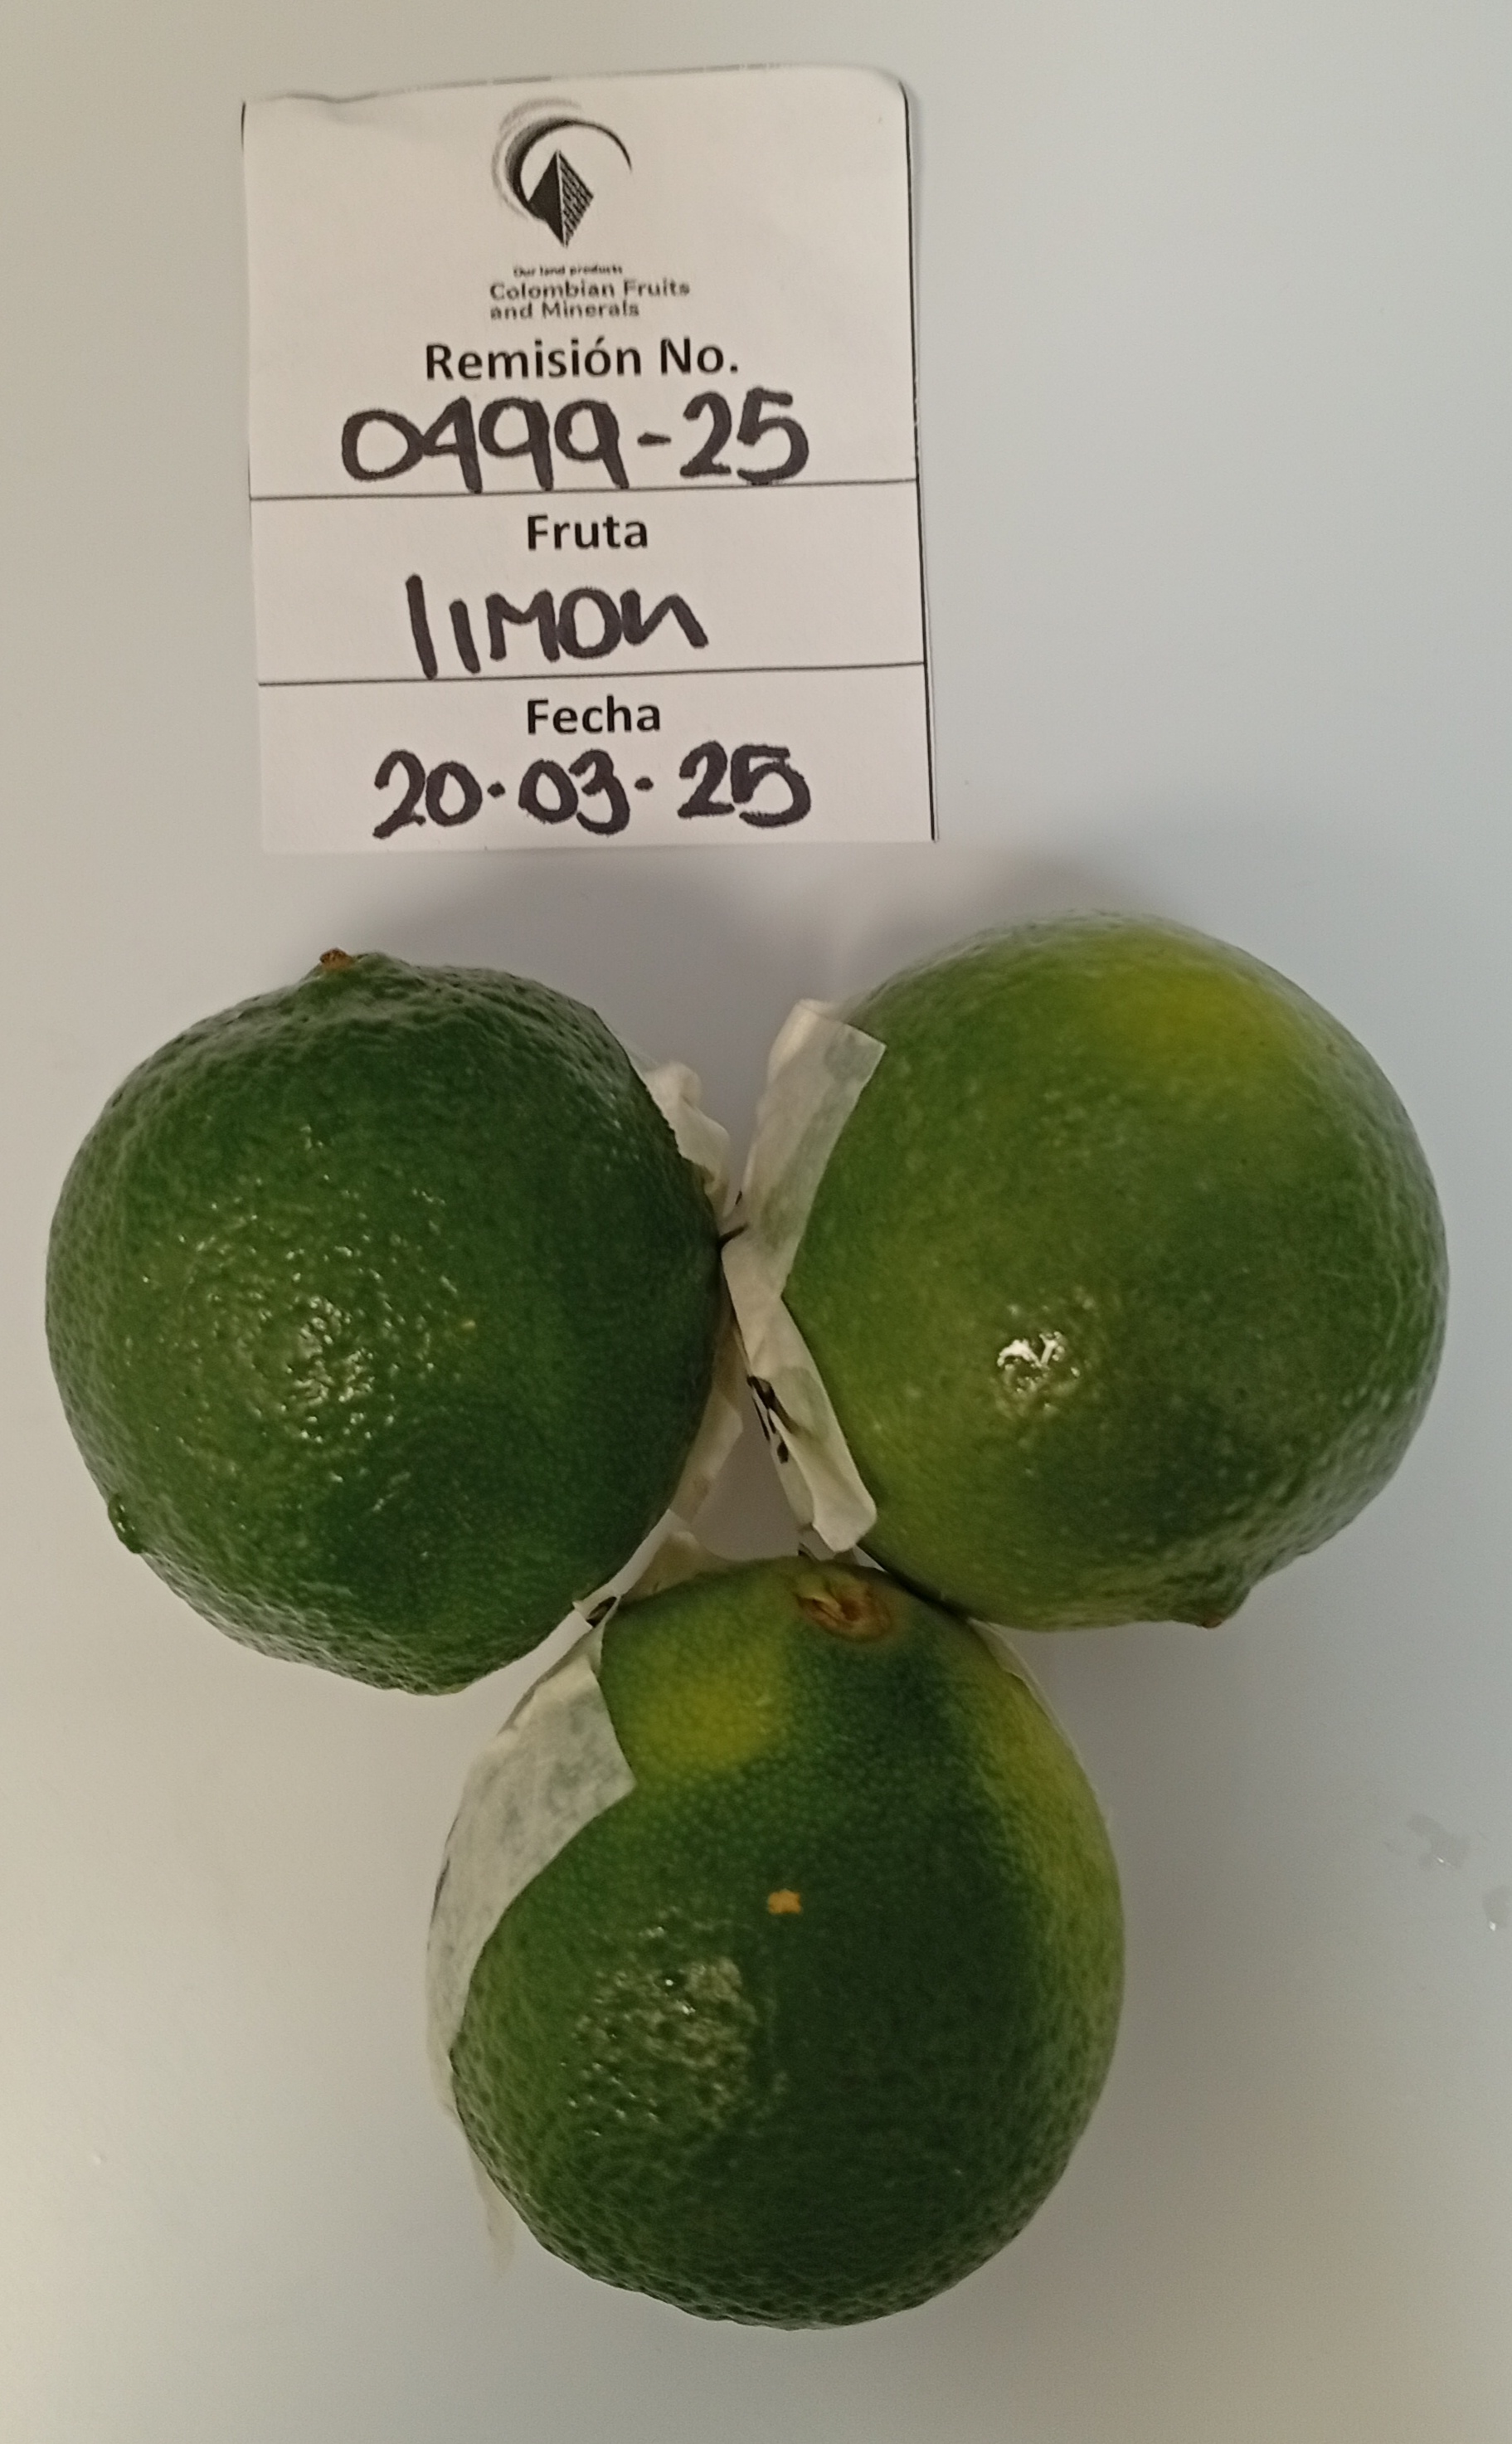 Our land products
Colombian Fruits
and Minerals
Remisión No.
0499-25
Fruta
limon
Fecha
20.03.25